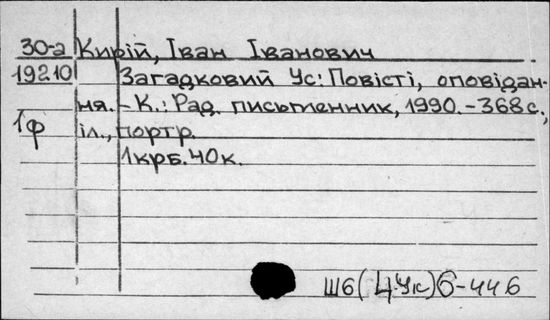 30-а Кирій, Іван Іванович
19210 Загадковий Ус: Повісті, оповідан-
ня. - К.: Рад. письменник, 1990. - 368 с.,
1ф іл., портр.
1 крб. 40 к.
Ш6(4Ук)6-44 6